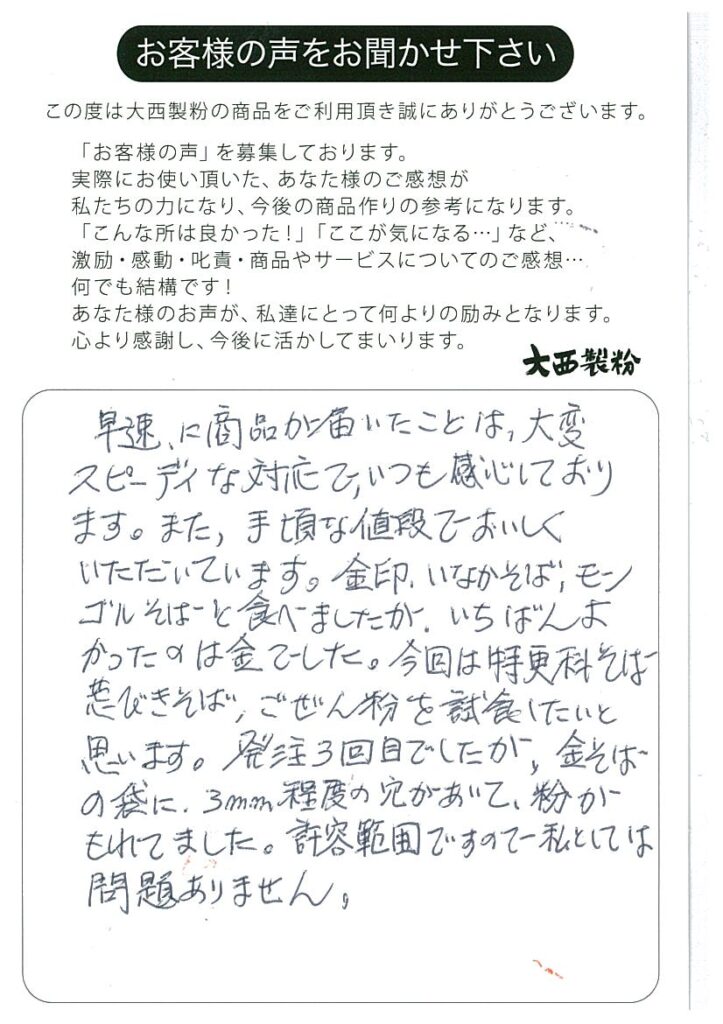 お客様の声をお聞かせ下さい
この度は大西製粉の商品をご利用頂き誠にありがとうございます。
「お客様の声」を募集しております。
実際にお使い頂いた、あなた様のご感想が
私たちの力になり、今後の商品作りの参考になります。
「こんな所は良かった！」「ここが気になる…」など、
激励・感動・叱責・商品やサービスについてのご感想…
何でも結構です！
あなた様のお声が、私達にとって何よりの励みとなります。
心より感謝し、今後に活かしてまいります。
大西製粉
早速、に商品が届いたことは、大変
スピーディな対応で、いつも感心しており
ます。また、手頃な値段でおいしく
いただいています。金印、いなかそば、モン
ゴルそばと食べましたが、いちばんよ
かったのは金でした。今回は特更科そば
荒びきそば、ごぜん粉を試食したいと
思います。発注3回目でしたが、金そば
の袋に、3mm程度の穴があいて、粉が
もれてました。許容範囲ですので私としては
問題ありません。